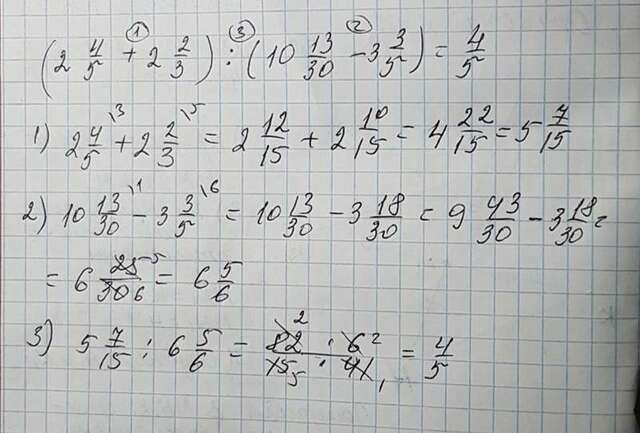 ① ③ ②
(2 4/5 + 2 2/3) : (10 13/30 - 3 3/5) = 4/5
1) 2 4/5 \3 + 2 2/3 \5 = 2 12/15 + 2 10/15 = 4 22/15 = 5 7/15
2) 10 13/30 \1 - 3 3/5 \6 = 10 13/30 - 3 18/30 = 9 43/30 - 3 18/30 =
= 6 25 5/30 6 = 6 5/6
3) 5 7/15 : 6 5/6 = 82 2 · 6 2/15 5 · 41 1 = 4/5